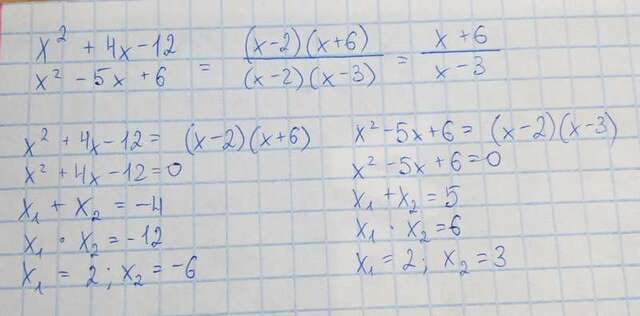 x² + 4x - 12 / x² - 5x + 6 = (x-2)(x+6) / (x-2)(x-3) = x + 6 / x - 3
x² + 4x - 12 = (x-2)(x+6)
x² + 4x - 12 = 0
x₁ + x₂ = -4
x₁ · x₂ = -12
x₁ = 2; x₂ = -6
x² - 5x + 6 = (x-2)(x-3)
x² - 5x + 6 = 0
x₁ + x₂ = 5
x₁ · x₂ = 6
x₁ = 2; x₂ = 3